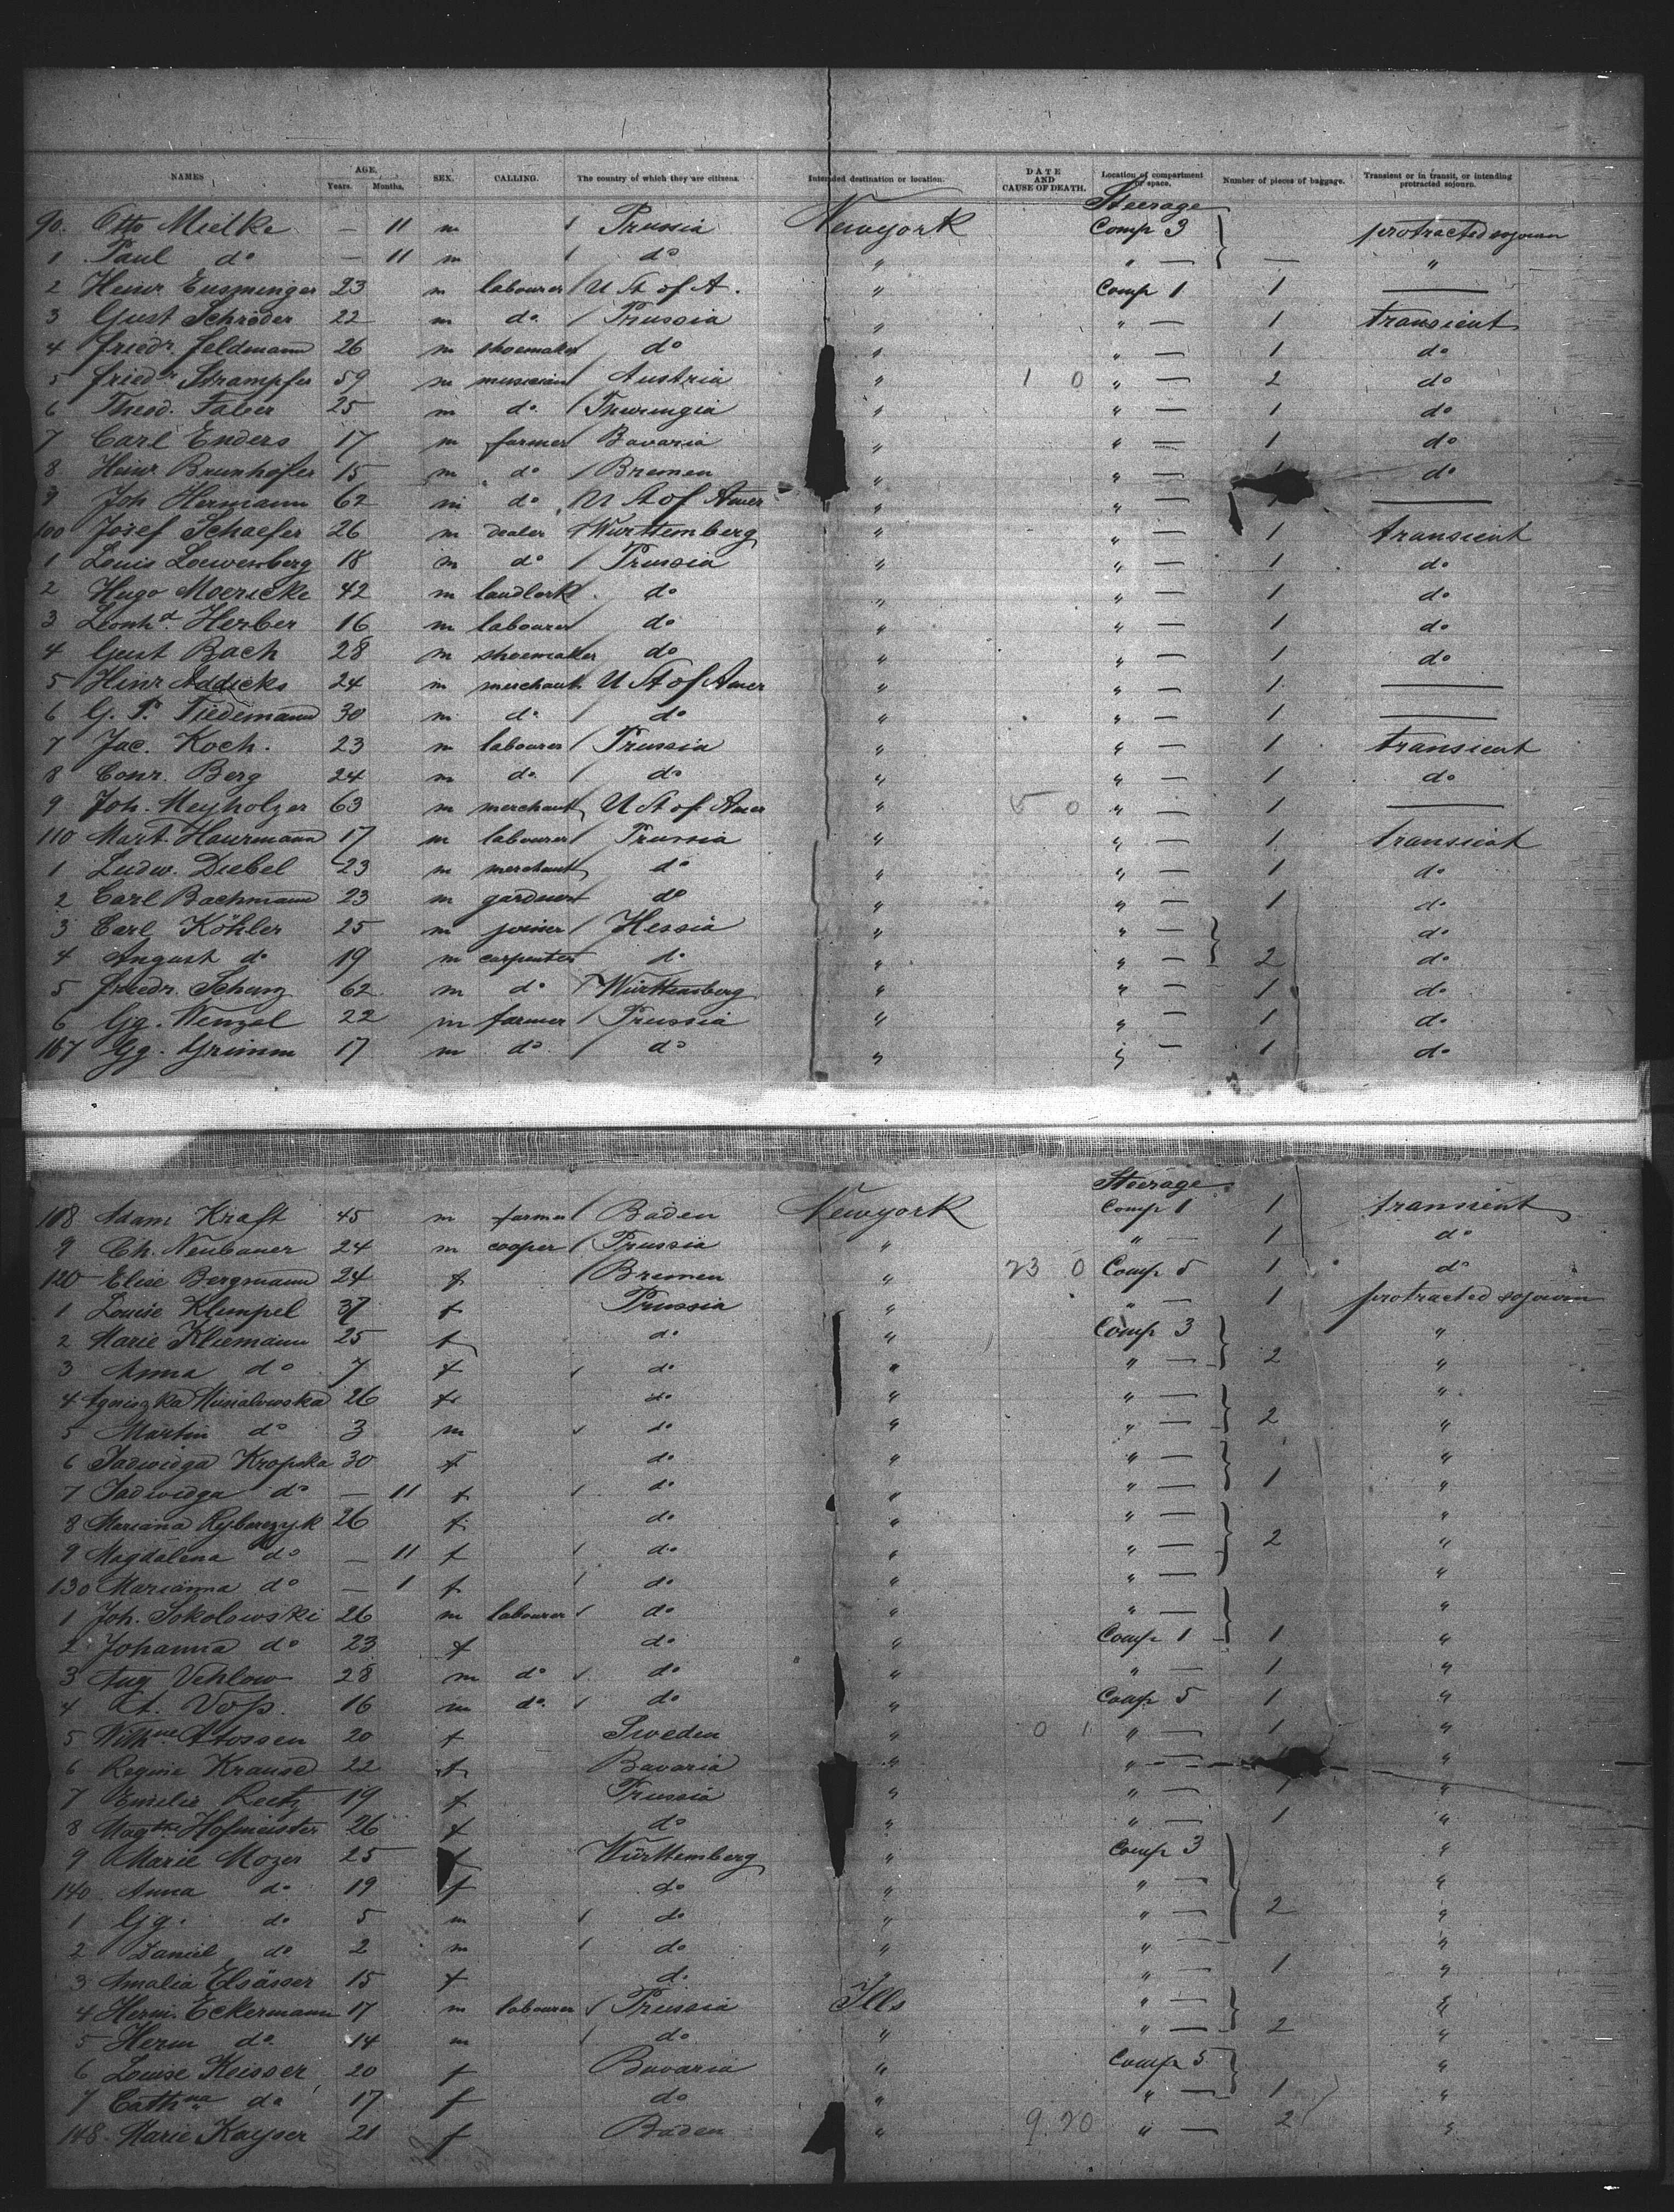 NAMES AGE, Years. Months. SEX. CALLING. The country of which they are citizens. Intended destination or location. DATE AND CAUSE OF DEATH. Location of compartment or space. Number of pieces of baggage. Transient or in transit, or intending protracted sojourn.
Steerage
90. Otto Mielke — 11 m / Prussia Newyork Comp 3 } protracted sojourn
1 Paul do — 11 m / do " " — } — "
2 Heinr. Eusminger 23 m labourer / U St of A. " Comp 1 1 —
3 Gust Schröder 22 m do. / Prussia " " — 1 transient
4 Friedr. Feldmann 26 m shoemaker do " " — 1 do
5 Friedr. Strampfer 59 m musician Austria " 1 0 " — 2 do
6 Theod. Faber 25 m do. / Thuringia " " — 1 do
7 Carl Enders 17 m farmer Bavaria " " — 1 do
8 Heinr Brunhofer 15 m do / Bremen " " — do
9 Joh Hermann 62 m do / U St of Amer " " — —
100 Josef Schaefer 26 m dealer / Württemberg " " — 1 transient
1 Louis Loewenberg 18 m do / Prussia " " — 1 do
2 Hugo Moericke 42 m landlork do " " — 1 do
3 Leonhd. Herber 16 m labourer do " " — 1 do
4 Gust Bach 28 m shoemaker do " " — 1 do
5 Hinr Addicks 24 m merchant U St of Amer " " — 1 —
6 G. P. Tiedemann 30 m do / do " " — 1 —
7 Jac. Koch. 23 m labourer / Prussia " " — 1 transient
8 Conr. Berg 24 m do. / do " " — 1 do
9 Joh. Meyholzer 63 m merchant U St of Amer " 5 0 " — 1 —
110 Mart. Haurmann 17 m labourer Prussia " " — 1 transient
1 Ludw. Diebel 23 m merchant do " " — 1 do
2 Carl Bachmann 23 m gardner do " " — 1 do
3 Carl Köhler 25 m joiner / Hessia " " — } do
4 August do 19 m carpenter do " " — } 2 do
5 Friedr. Schurz 62 m do / Württemberg " " — 1 do
6 Gg. Wenzel 22 m farmer / Prussia " " — 1 do
107 Gg. Grimm 17 m do / do " " — 1 do
Steerage
108 Adam Kraft 45 m farmer / Baden Newyork Comp 1 1 transient
9 Ch. Neubauer 24 m cooper / Prussia " " — 1 do
120 Elise Bergmann 24 f / Bremen " 23 0 Comp 5 1 do
1 Louise Klempel 37 f Prussia " " — 1 protracted sojourn
2 Marie Kliemann 25 f do " Comp 3 } "
3 Anna do 7 f / do " " — } 2 "
4 Agniszka Musialowska 26 f do " " — } "
5 Martin do 3 m / do " " — } 2 "
6 Jadwidga Kropska 30 f do " " — } "
7 Jadwidga do — 11 f / do " " — } 1 "
8 Mariana Rybarczyk 26 f do " " — } "
9 Magdalena do — 11 f / do " " — } 2 "
130 Marianna do — 1 f / do " " — "
1 Joh. Sokolowski 26 m labourer / do " " — } "
2 Johanna do 23 f do " Comp 1 } 1 "
3 Aug Vehlow 28 m do / do " " — 1 "
4 A. Voß. 16 m do. / do " Comp 5 1 "
5 Wilhne 20 f Sweden " 0 1 " — 1 "
6 Regine Krause 22 f Bavaria " " — "
7 Emilie Reetz 19 f Prussia " " — 1 "
8 Magthe Hofmeister 26 f do " " — 1 "
9 Marie Mozer 25 f Württemberg " Comp 3 } "
140 Anna do 19 f do " " — "
1 Gg. do 5 m / do " " — 2 "
2 Daniel do 2 m / do " " — "
3 Amalia Elsässer 15 f do " " — 1 "
4 Herm. Eckermann 17 m labourer / Prussia Ills " — } "
5 Herm do 14 m / do " " — } 2 "
6 Louise Keisser 20 f Bavaria " Comp 5 } "
7 Cathna do 17 f do " " — } 1 "
148. Marie Kayser 21 f Baden " 9.20 " — 2 "